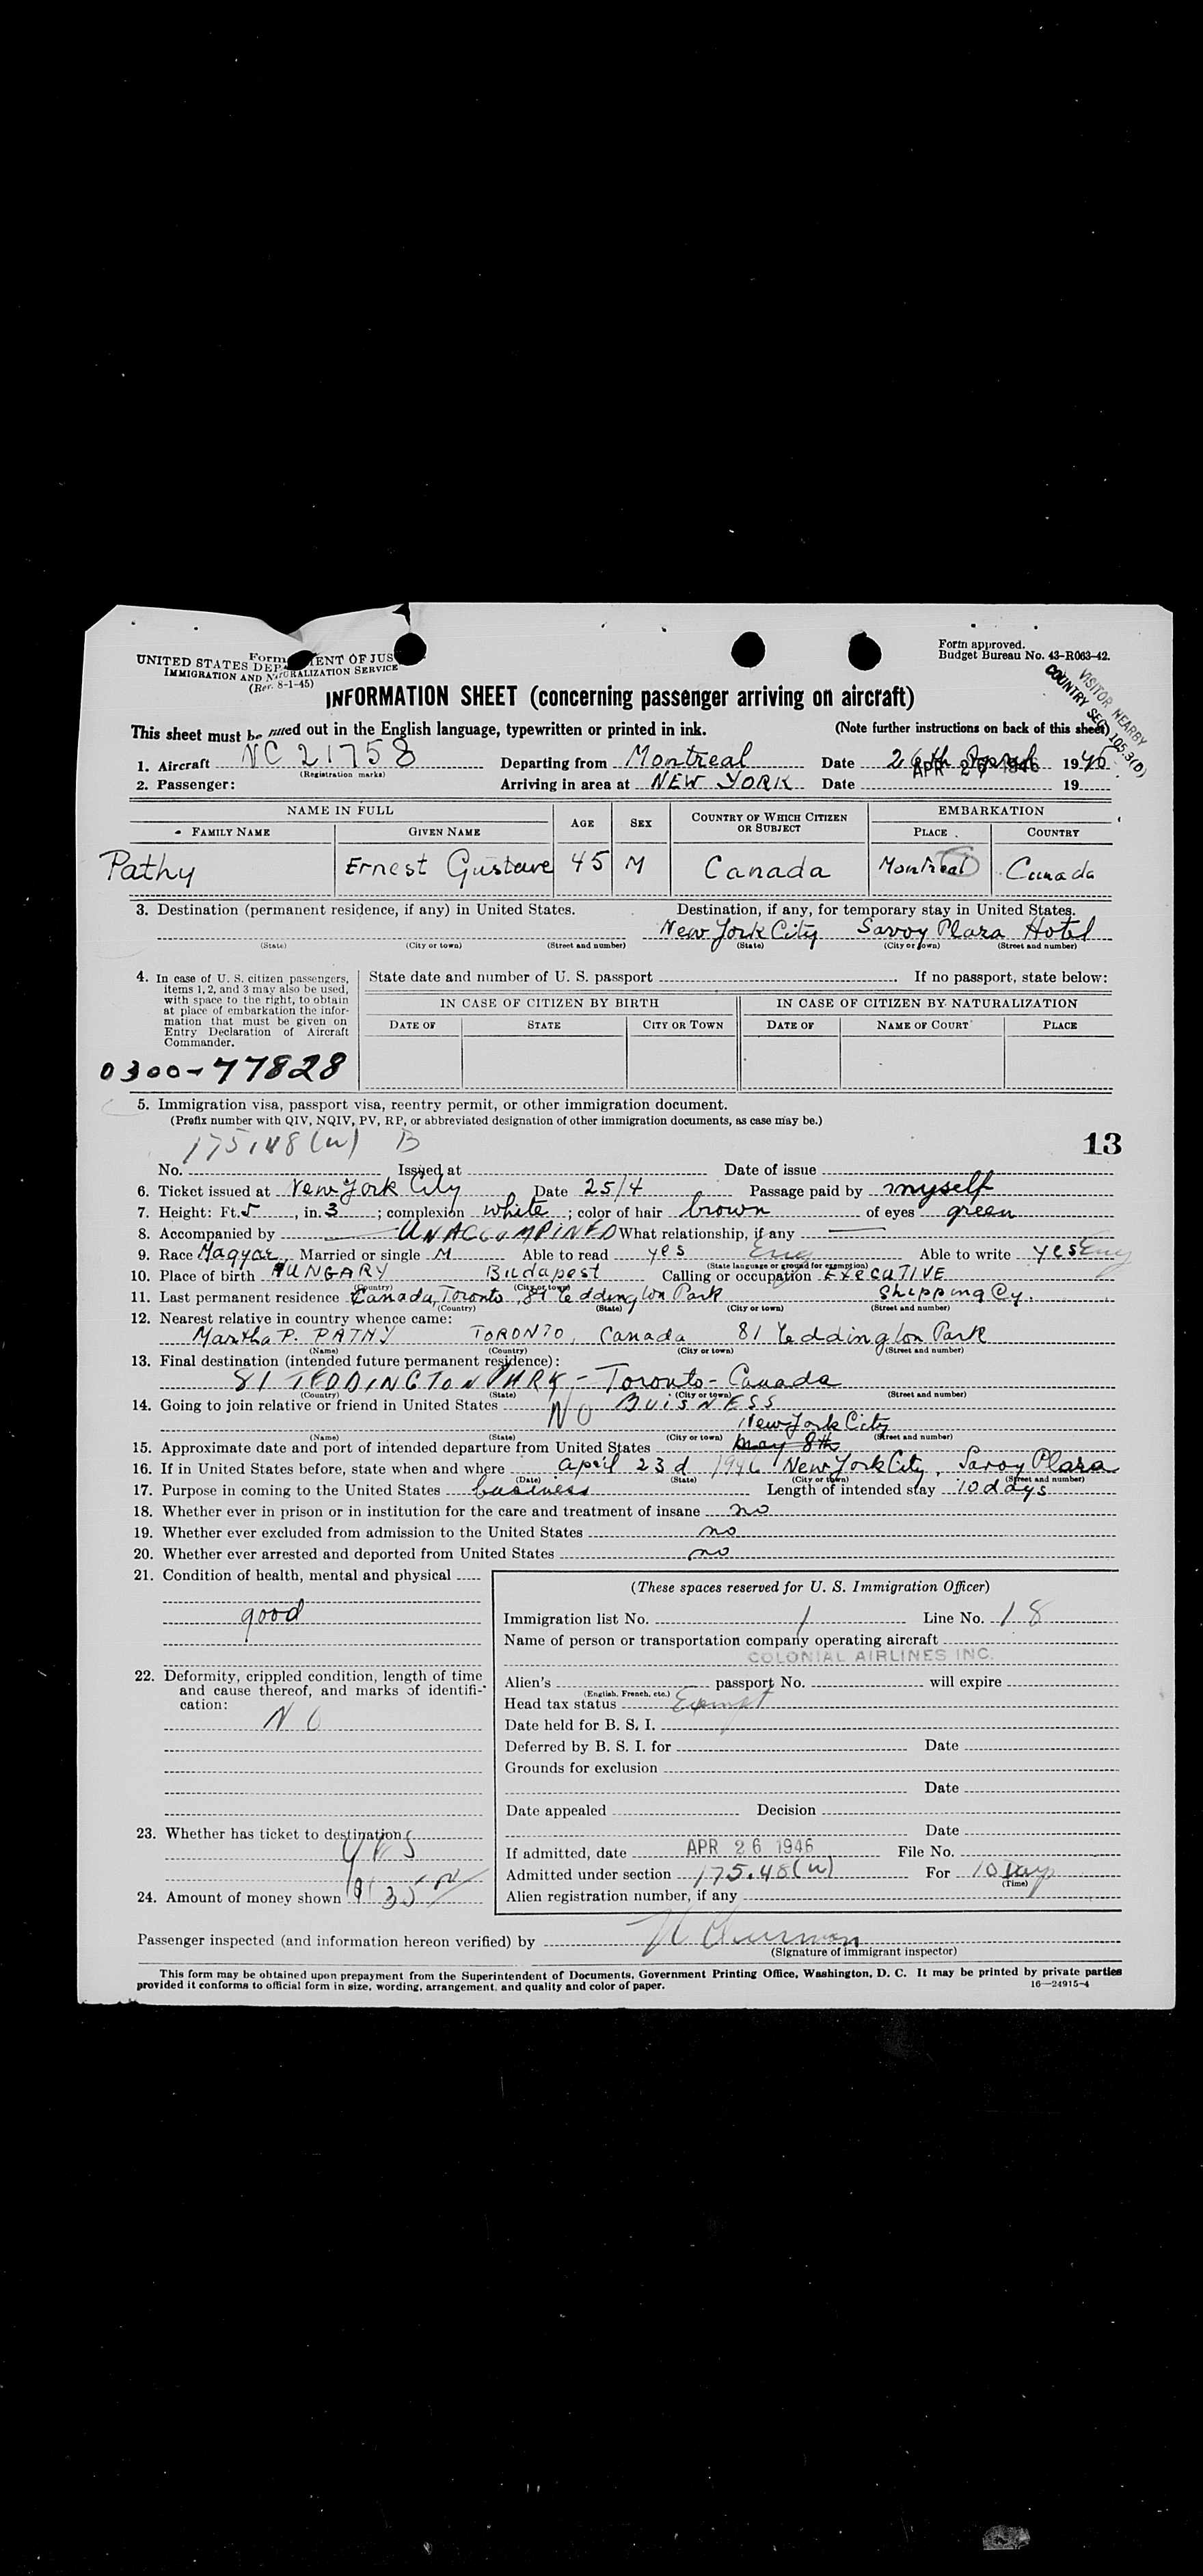 Form
UNITED STATES DEPARTMENT OF JUS
IMMIGRATION AND NATURALIZATION SERVICE
(Rev. 8-1-45)
Form approved.
Budget Bureau No. 43-R063-42.
VISITOR NEARBY
COUNTRY SEC) 105.3(D)
INFORMATION SHEET (concerning passenger arriving on aircraft)
This sheet must be filled out in the English language, typewritten or printed in ink. (Note further instructions on back of this sheet)
1. Aircraft NC 21758 Departing from Montreal Date 26th April 1946
(Registration marks) APR 26 1946
2. Passenger: Arriving in area at NEW YORK Date 19
NAME IN FULL AGE SEX COUNTRY OF WHICH CITIZEN OR SUBJECT EMBARKATION
FAMILY NAME GIVEN NAME PLACE COUNTRY
Pathy Ernest Gustave 45 M Canada Montreal Canada
3. Destination (permanent residence, if any) in United States. Destination, if any, for temporary stay in United States.
New York City Savoy Plaza Hotel
(State) (City or town) (Street and number) (State) (City or town) (Street and number)
4. In case of U. S. citizen passengers, items 1, 2, and 3 may also be used, with space to the right, to obtain at place of embarkation the information that must be given on Entry Declaration of Aircraft Commander.
State date and number of U. S. passport If no passport, state below:
IN CASE OF CITIZEN BY BIRTH IN CASE OF CITIZEN BY NATURALIZATION
DATE OF STATE CITY OR TOWN DATE OF NAME OF COURT PLACE
0300-77828
5. Immigration visa, passport visa, reentry permit, or other immigration document.
(Prefix number with QIV, NQIV, PV, RP, or abbreviated designation of other immigration documents, as case may be.)
175.48(w) B 13
No. Issued at Date of issue
6. Ticket issued at New York City Date 25/4 Passage paid by myself
7. Height: Ft. 5, in. 3; complexion white; color of hair brown of eyes green
8. Accompanied by UNACCOMPINED What relationship, if any
9. Race Magyar Married or single M Able to read yes Eng Able to write yes Eng
(State language or ground for exemption)
10. Place of birth HUNGARY Budapest Calling or occupation EXECUTIVE
(Country) (City or town)
11. Last permanent residence Canada, Toronto, 81 Teddington Park Shipping Cy.
(Country) (State) (City or town) (Street and number)
12. Nearest relative in country whence came:
Martha P. PATHY TORONTO, Canada 81 Teddington Park
(Name) (Country) (City or town) (Street and number)
13. Final destination (intended future permanent residence):
81 TEDDINGTON PARK - Toronto - Canada
(Country) (State) (City or town) (Street and number)
14. Going to join relative or friend in United States NO BUISNESS
New York City
(Name) (State) (City or town) (Street and number)
15. Approximate date and port of intended departure from United States May 8th
16. If in United States before, state when and where april 23d 1946 New York City, Savoy Plaza
(Date) (State) (City or town) (Street and number)
17. Purpose in coming to the United States business Length of intended stay 10 days
18. Whether ever in prison or in institution for the care and treatment of insane no
19. Whether ever excluded from admission to the United States no
20. Whether ever arrested and deported from United States no
21. Condition of health, mental and physical
good
22. Deformity, crippled condition, length of time and cause thereof, and marks of identification:
NO
23. Whether has ticket to destination
yes
24. Amount of money shown 35
(These spaces reserved for U. S. Immigration Officer)
Immigration list No. 1 Line No. 18
Name of person or transportation company operating aircraft
COLONIAL AIRLINES INC.
Alien's passport No. will expire
(English, French, etc.)
Head tax status Exempt
Date held for B. S. I.
Deferred by B. S. I. for Date
Grounds for exclusion
Date
Date appealed Decision
Date
If admitted, date APR 26 1946 File No.
Admitted under section 175.48(w) For 10 days
(Time)
Alien registration number, if any
Passenger inspected (and information hereon verified) by
(Signature of immigrant inspector)
This form may be obtained upon prepayment from the Superintendent of Documents, Government Printing Office, Washington, D. C. It may be printed by private parties
provided it conforms to official form in size, wording, arrangement, and quality and color of paper. 16—24915-4